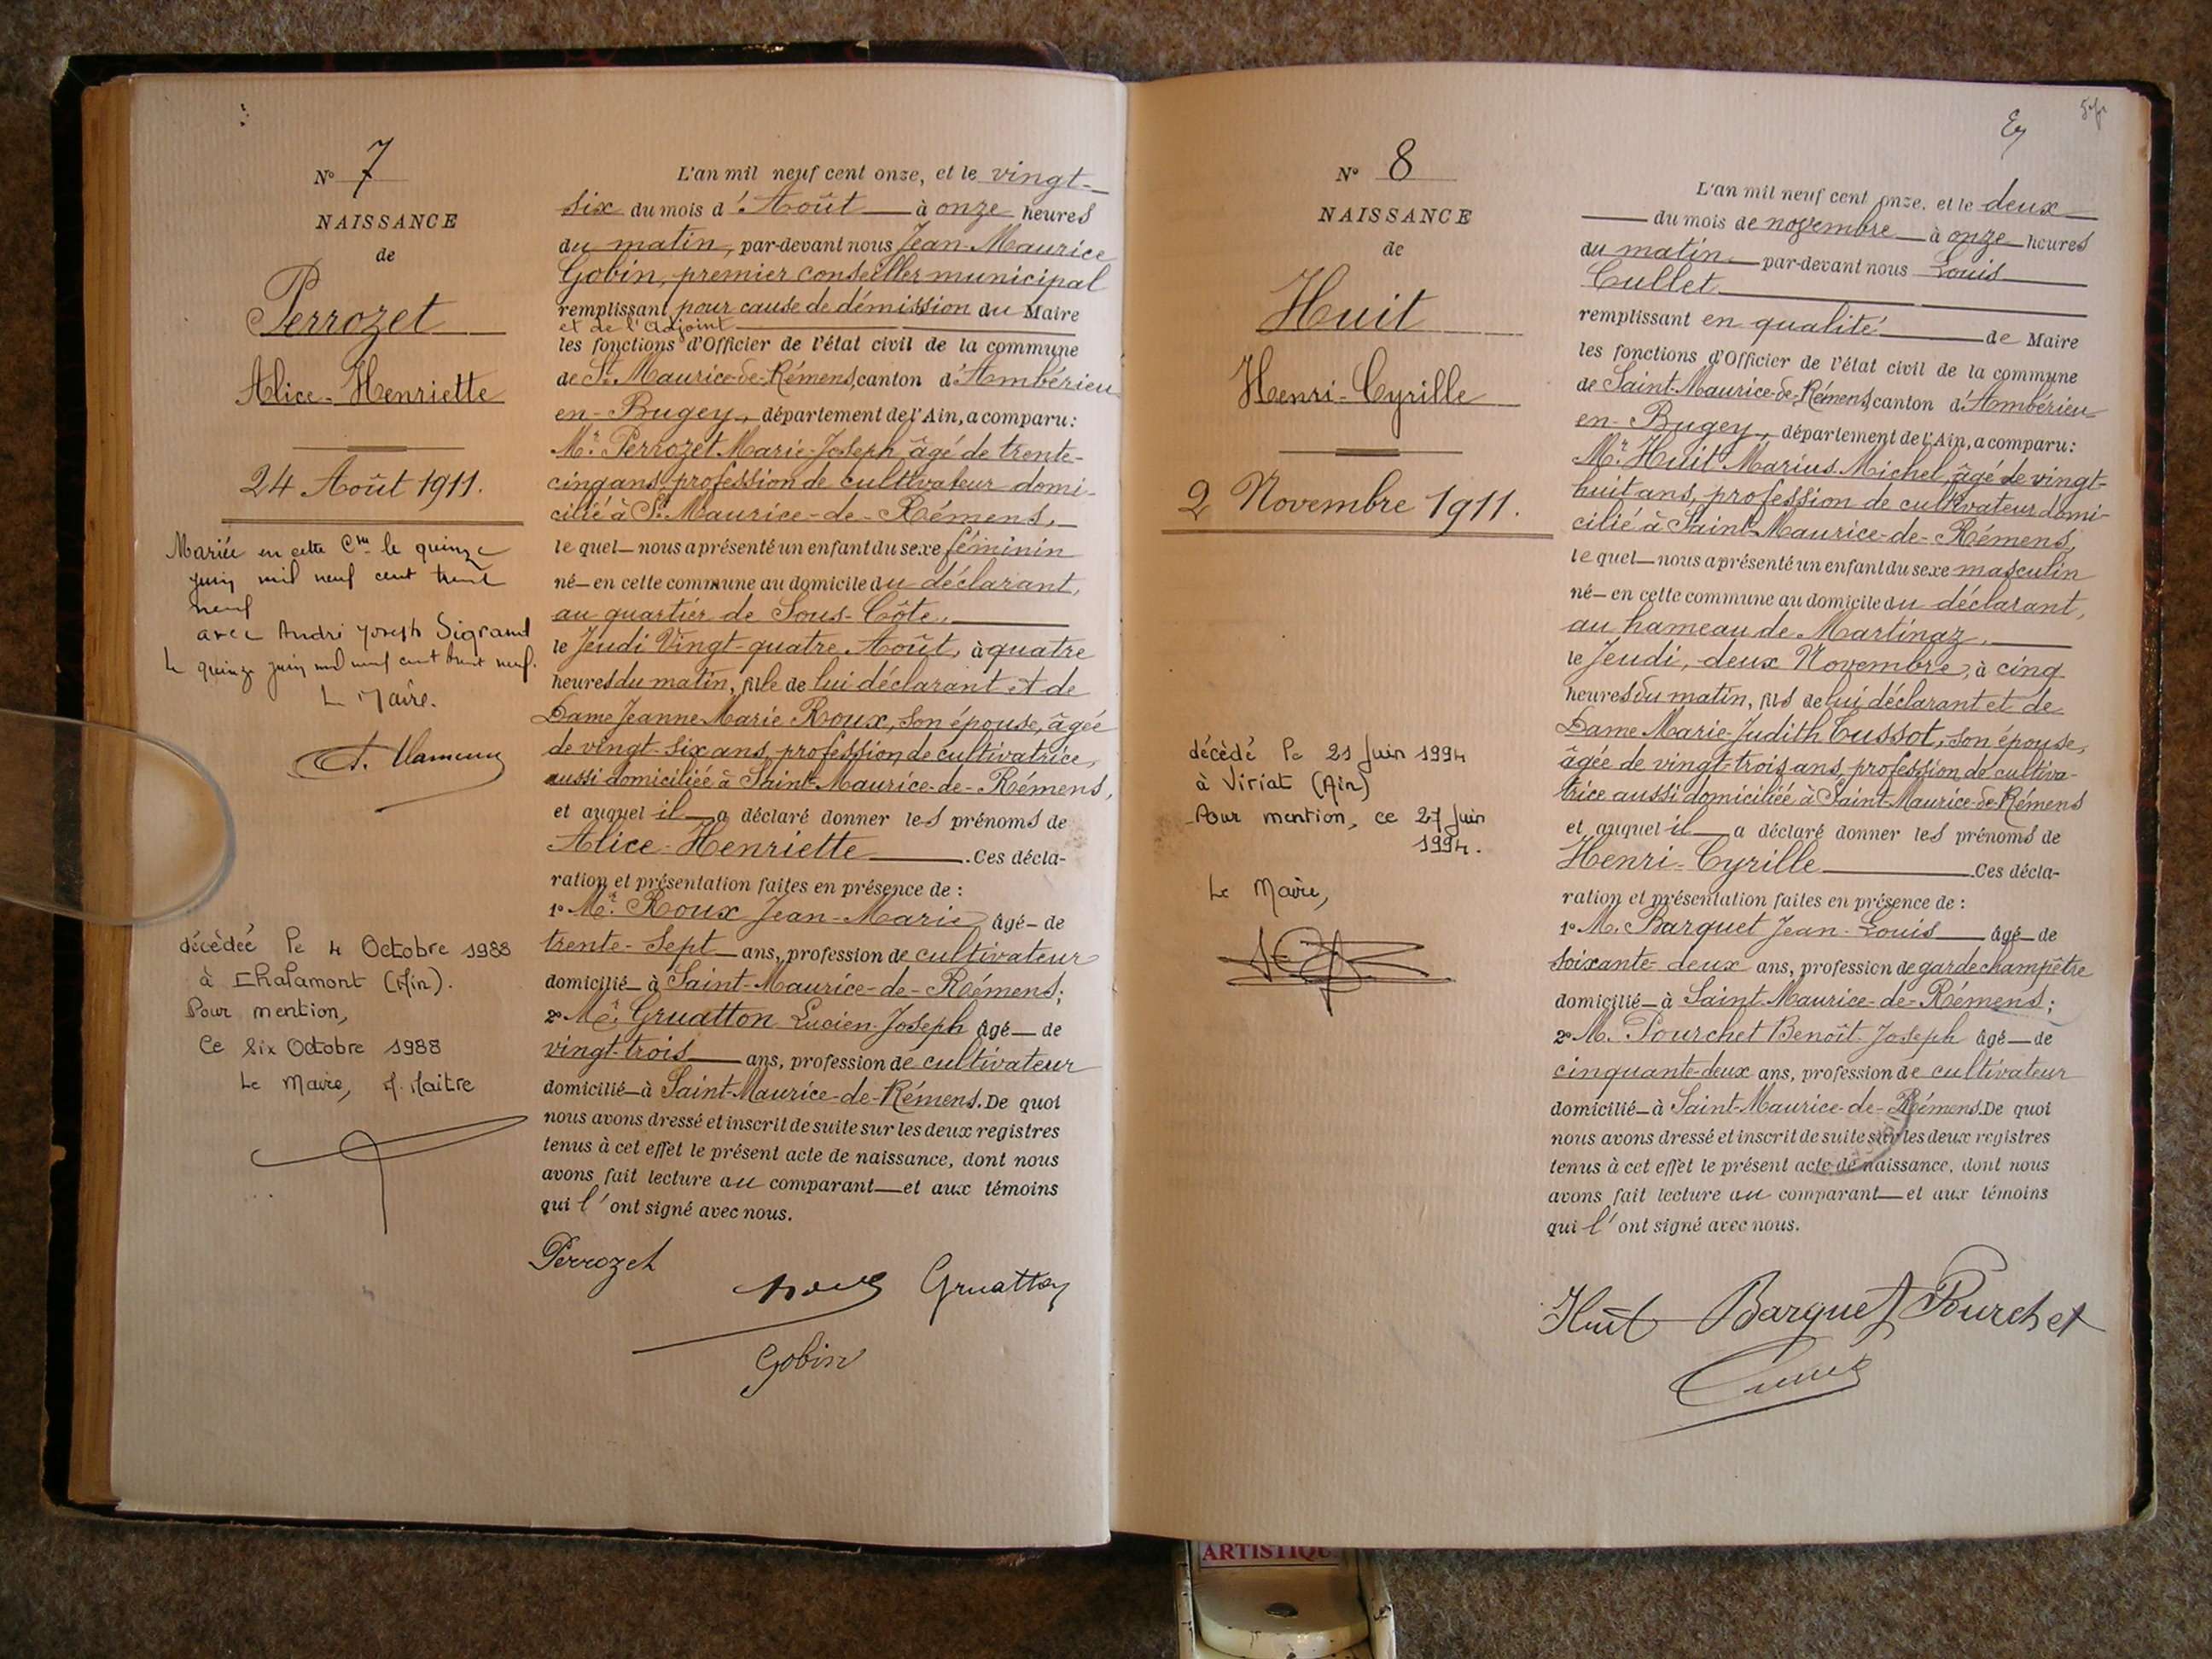 N° 7
NAISSANCE
de
Perrozet
Alice-Henriette
24 Août 1911.
Mariée en cette Cne le quinze
juin mil neuf cent trente
neuf
avec André Joseph Sigrand
le quinze juin mil neuf cent trente neuf.
Le Maire.
décédée le 4 Octobre 1988
à Chalamont (Ain).
Pour mention,
Ce Six Octobre 1988
Le Maire,
L'an mil neuf cent onze, et le vingt-
six du mois d'Août à onze heures
du matin, par-devant nous Jean-Maurice
Gobin, premier conseiller municipal
remplissant pour cause de démission du Maire
et de l'adjoint
les fonctions d'Officier de l'état civil de la commune
de St. Maurice-de-Rémens, canton d'Ambérieu
en-Bugey, département de l'Ain, a comparu:
Mr. Perrozet Marie-Joseph, âgé de trente-
cinq ans, profession de cultivateur domi-
cilié à St. Maurice-de-Rémens,
le quel nous a présenté un enfant du sexe féminin
né en cette commune au domicile du déclarant,
au quartier de Sous-Côte,
le Jeudi Vingt-quatre Août, à quatre
heures du matin, fille de lui déclarant et de
Dame Jeanne-Marie Roux, son épouse, âgée
de vingt-six ans, profession de cultivatrice,
aussi domiciliée à Saint-Maurice-de-Rémens,
et auquel il a déclaré donner les prénoms de
Alice-Henriette. Ces décla-
ration et présentation faites en présence de :
1° Mr. Roux Jean-Marie âgé de
trente-sept ans, profession de cultivateur
domicilié à Saint-Maurice-de-Rémens;
2° Mr. Gruatton Lucien-Joseph âgé de
vingt-trois ans, profession de cultivateur
domicilié à Saint-Maurice-de-Rémens. De quoi
nous avons dressé et inscrit de suite sur les deux registres
tenus à cet effet le présent acte de naissance, dont nous
avons fait lecture au comparant et aux témoins
qui l'ont signé avec nous.
Perrozet
Roux Gruatton
Gobin
N° 8
NAISSANCE
de
Huit
Henri-Cyrille
2 Novembre 1911.
décédé le 21 Juin 1994
à Viriat (Ain)
Pour mention, ce 27 Juin
1994.
Le Maire,
L'an mil neuf cent onze, et le deux
du mois de novembre à onze heures
du matin par-devant nous Louis
Cullet
remplissant en qualité de Maire
les fonctions d'Officier de l'état civil de la commune
de Saint-Maurice-de-Rémens, canton d'Ambérieu-
en-Bugey, département de l'Ain, a comparu:
Mr. Huit Marius-Michel, âgé de vingt-
huit ans, profession de cultivateur domi-
cilié à Saint-Maurice-de-Rémens,
le quel nous a présenté un enfant du sexe masculin
né en cette commune au domicile du déclarant,
au hameau de Martinaz,
le Jeudi, deux Novembre, à cinq
heures du matin, fils de lui déclarant et de
Dame Marie-Judith Cussot, son épouse,
âgée de vingt-trois ans, profession de cultiva-
trice aussi domiciliée à Saint-Maurice-de-Rémens
et auquel il a déclaré donner les prénoms de
Henri-Cyrille. Ces décla-
ration et présentation faites en présence de :
1° M. Barquet Jean-Louis âgé de
soixante-deux ans, profession de garde champêtre
domicilié à Saint-Maurice-de-Rémens;
2° M. Pourchet Benoît-Joseph âgé de
cinquante-deux ans, profession de cultivateur
domicilié à Saint-Maurice-de-Rémens. De quoi
nous avons dressé et inscrit de suite sur les deux registres
tenus à cet effet le présent acte de naissance, dont nous
avons fait lecture au comparant et aux témoins
qui l'ont signé avec nous.
Huit Barquet Pourchet
ARTISTIQUE